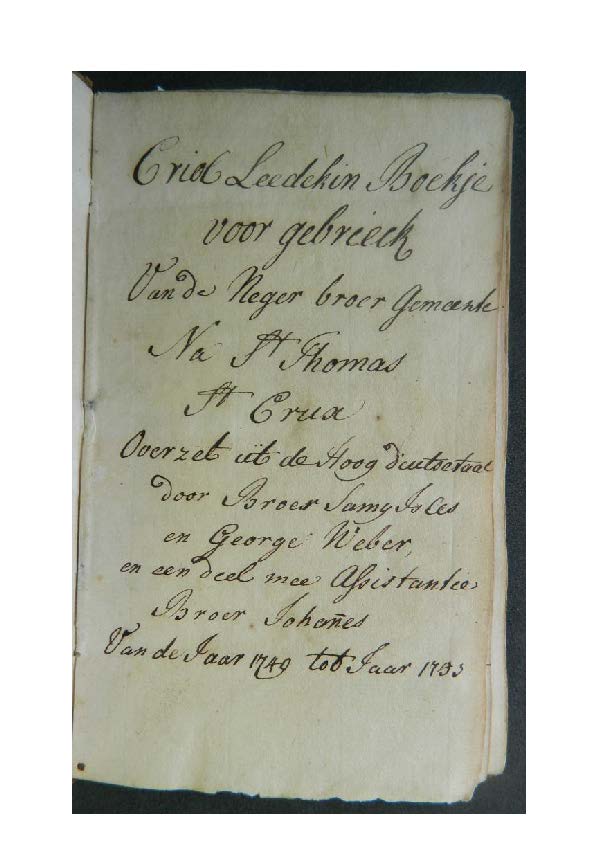 Criol Leedekin Boekje
voor gebrieck
Van de Neger broer Gemeente
Na St Thomas
St Crux
Overzet üt de Hoog düutsetaal
door Broer Samy Isles
en George Weber,
en een deel mee Assistantie
Broer Johañes
Van de Jaar 1749 tot Jaar 1753